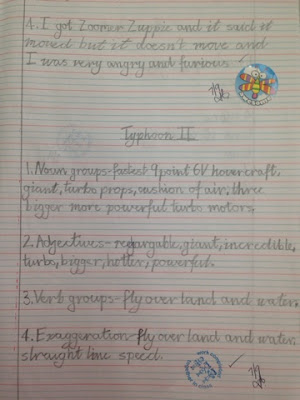 4. I got Zoomer Zuppie and it said it
moved but it doesn't move and
I was very angry and furious
Typhoon II
1. Noun groups-fastest 9 point 6V hovercraft,
giant, turbo props, cushion of air, three
bigger more powerful turbo motors.
2. Adjectives- regargable, giant, incredible,
turbo, bigger, hotter, powerful.
3. Verb groups-fly over land and water.
4. Exaggeration-fly over land and water,
straight line speed.